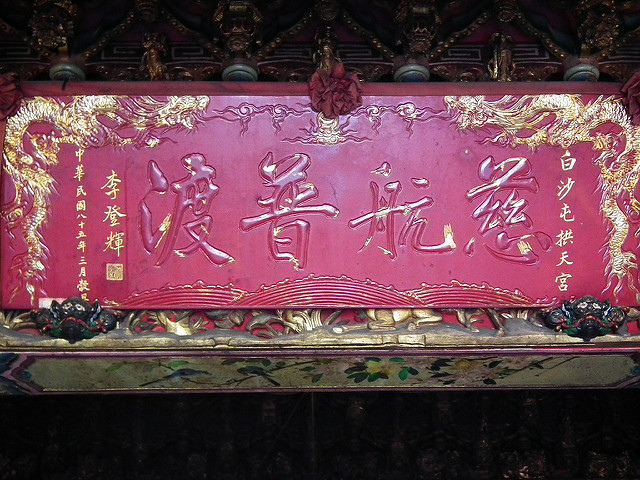 白沙屯拱天宮
慈航普渡
李登輝
中華民國八十五年三月敬